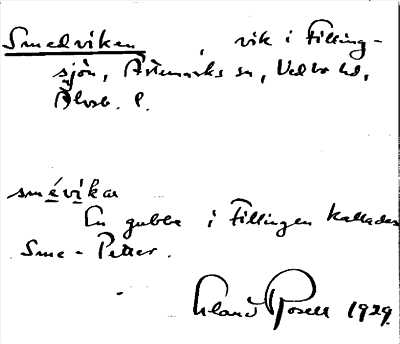 Smedviken, vik i Filling-
sjön, Ärtemarks sn, Vedbo hd,
Älvsb. l.
smévíkar
En gubbe i Fillingen kallades
Sme-Petter.
Erland Rosell 1929.